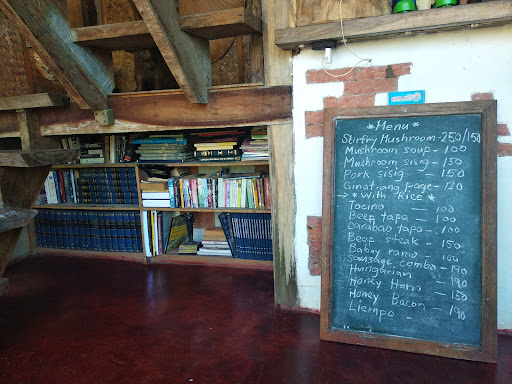 *Menu*
Stirfry Mushroom-250/150
Mushroom soup - 100
Mushroom sisig - 150
Pork sisig - 150
Ginataang page - 120
→ *with Rice*
Tocino - 100
Beef tapa - 100
Carabao tapa - 100
Beef steak - 150
Baboy ramo - 100
Sausage combo - 190
Hungarian - 190
Honey Ham - 150
Honey Bacon - 190
Liempo -